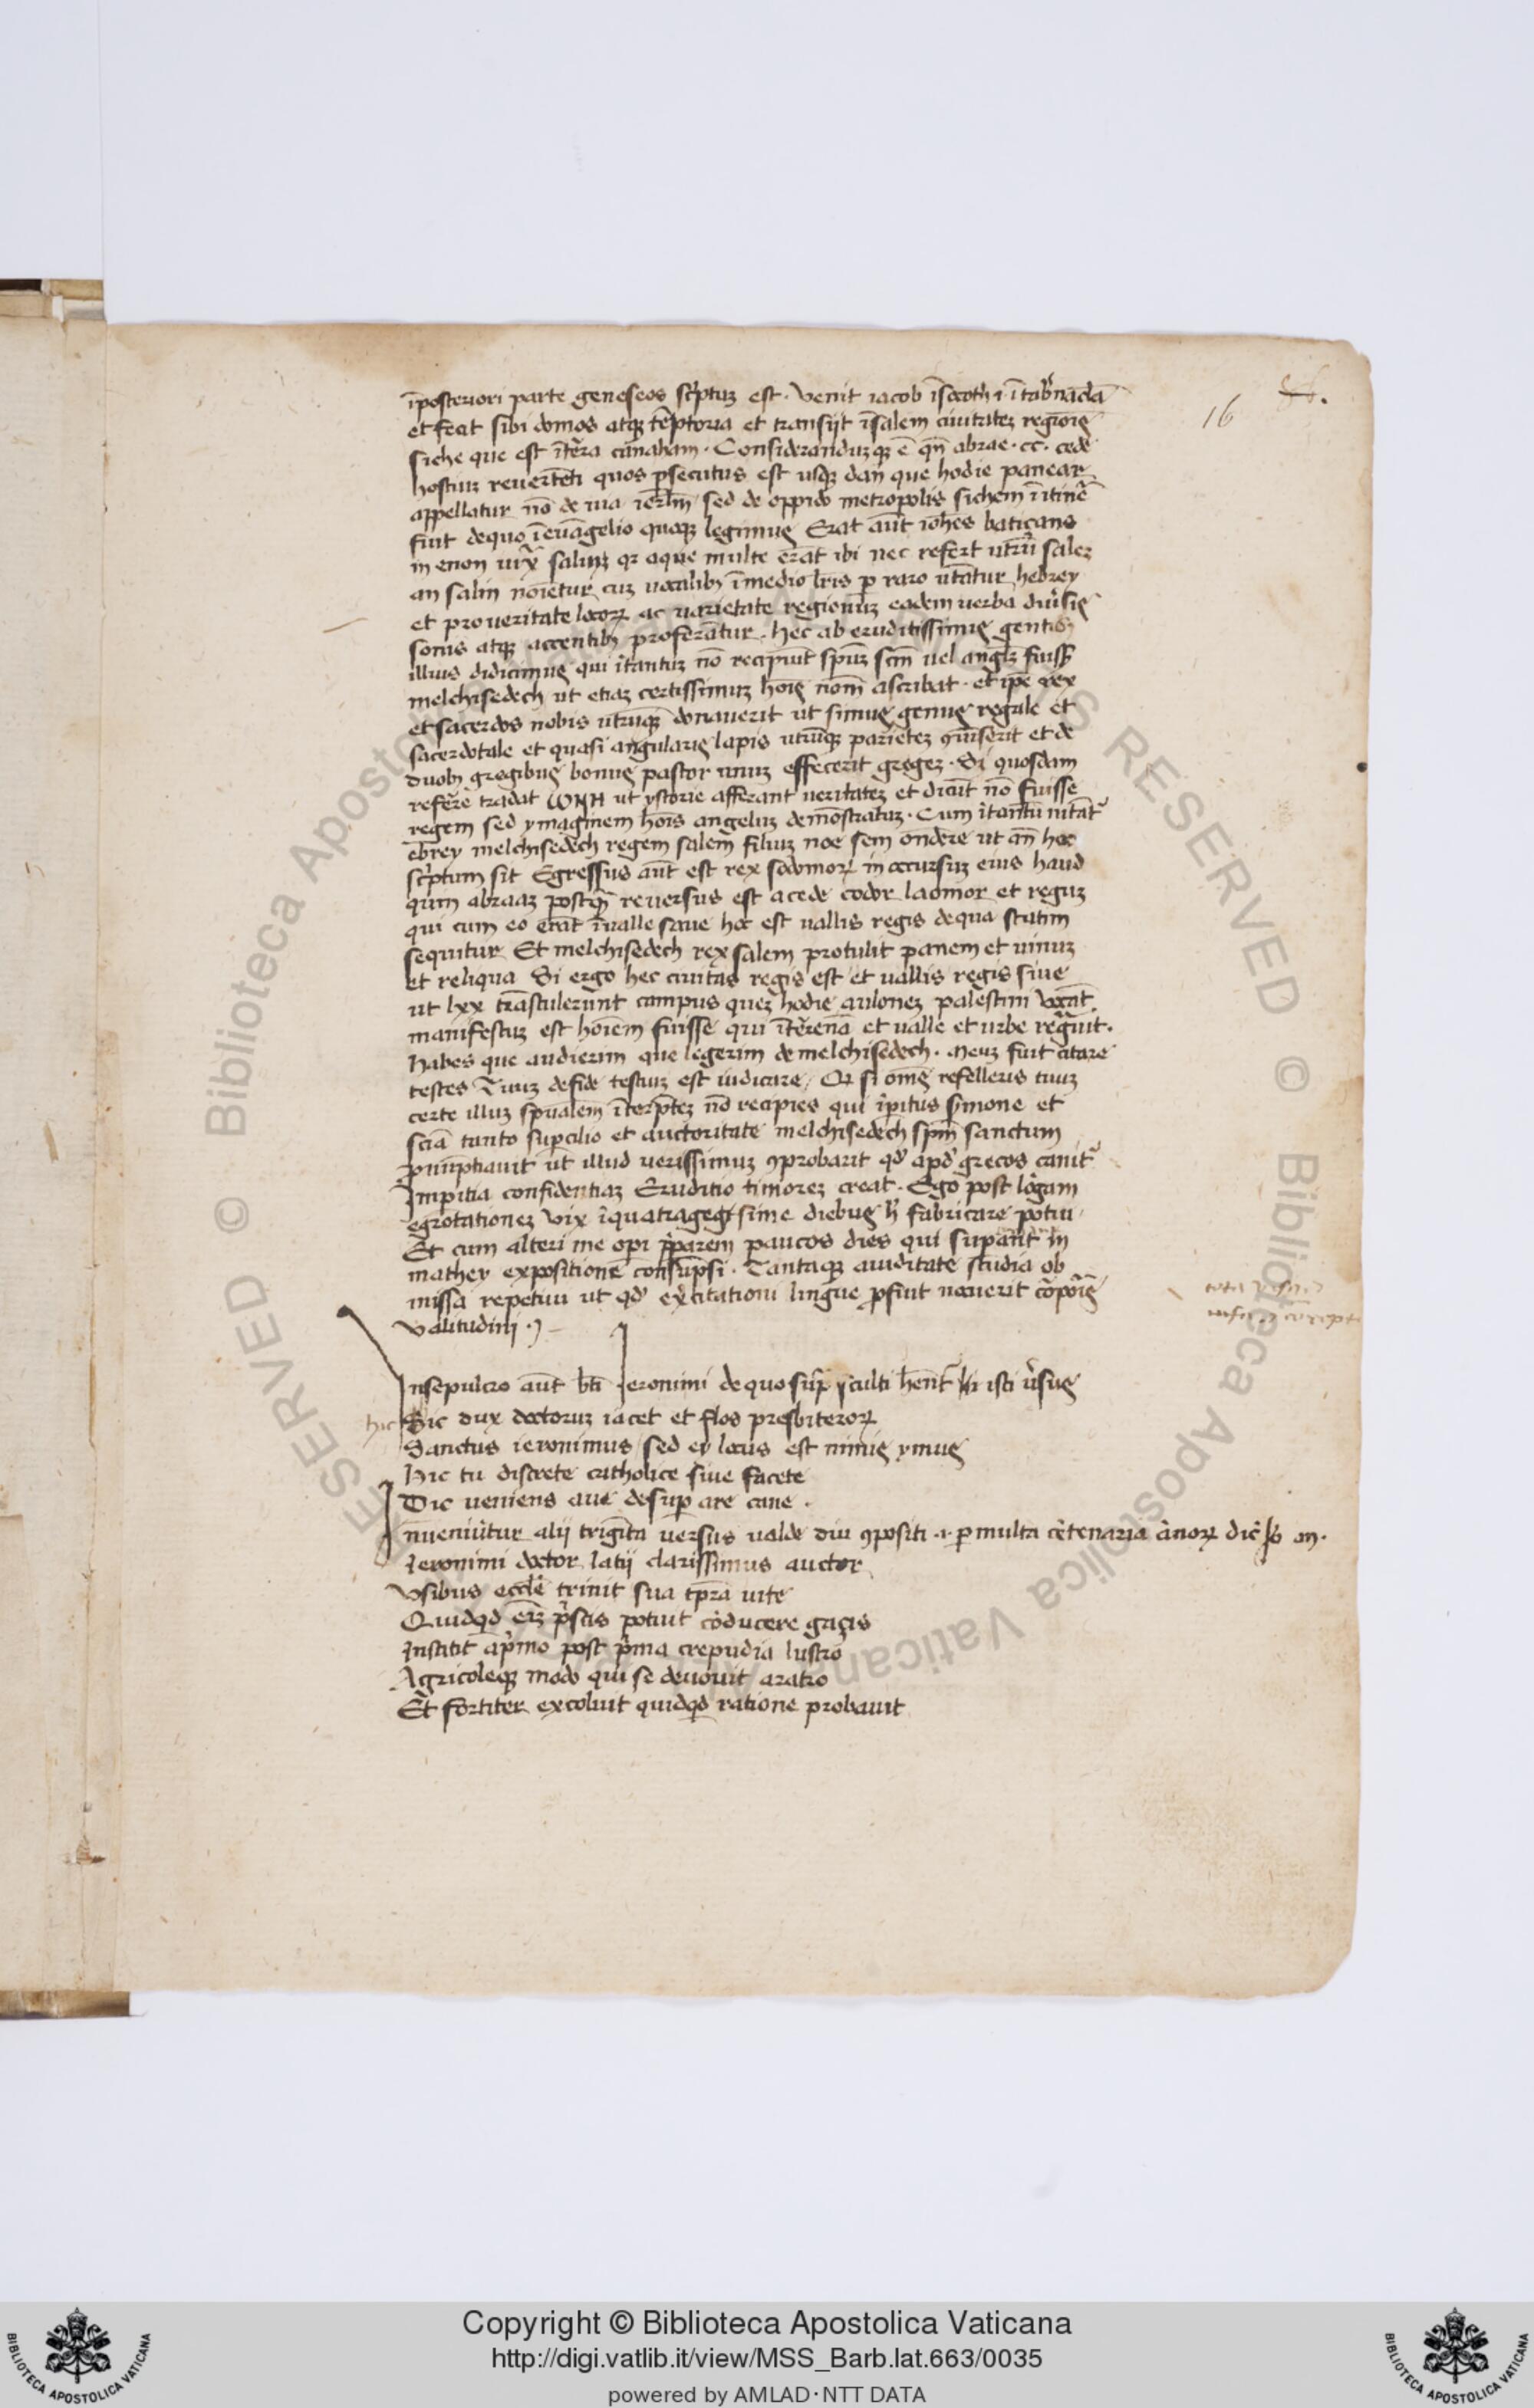 16
īposteriori parte geneseos sc̓ptuȝ est · Venit iacob īsocoth ·i· ītab̓nac̄la
et fecit sibi domos atqȝ tēptoria et transijt īsalem ciuitateȝ regiōis
siche que est īt̓ra canaham · Consideranduȝqȝ ē qn̄ abrae · cc · cede
hostiuȝ reuertēti quos p̱secutus est usqȝ dan que hodie panear
appellatur nō de uia ierl̄m sed de oppido metropolis sichem ī itinē
fuit dequo īeuāgelio quoqȝ legimus Erat aūt ioh̄es batiçans
in enon iux̄ saliȝ qꝛ aque multe erāt ibi nec refert utrū saleȝ
an salin noīetur cuȝ uocalibȝ īmedio lr̄is p̱ raro utātur hebrey
et pro ueritate locoꝝ ac uarietate regionuȝ eadem uerba diu̓sis
sonis atqȝ accentibȝ proferātur · hec ab eruditissimis gentis
illius didicimus qui ītantuȝ nō recipiūt spūȝ scm̄ uel angl̄ȝ fuiss̄
melchisedech ut etiaȝ certissimuȝ hoīs nom̄ ascribat · et ip̄e rex
et sacerdos nobis utrūqȝ donauerit ut simus genus regale et
sacerdotale et quasi angularis lapis utrūqȝ parieteȝ ꝯiūxerit et de
duobȝ gregibus bonus pastor unuȝ effecerit gregeȝ · Si quosdam
refēre tradat ut ystorie afferant ueritateȝ et dicūt nō fuisse
regem sed ymaginem hoīs angeluȝ demōstratuȝ · Cum ītantū nitāt̓
ebrey melchisedech regem salem filiuȝ noe sem ondēre ut an̄ hoc
sc̓ptum sit Egressus aūt est rex sodomoꝝ in occursuȝ eius haud
qum abraaȝ postq̄ȝ reuersus est acede codor laomor et reguȝ
qui cum eo erāt īualle saue hoc est uallis regis dequa statim
sequitur Et melchisedech rex salem protulit panem et uinuȝ
et reliqua Si ergo hec ciuitas regis est et uallis regis siue
ut lxx trāstulerunt campus queȝ hodie auloneȝ palestini uocāt
manifestuȝ est hoīem fuisse qui īt̓renā et ualle et urbe regnauit ·
habes que audierim que legerim de melchisedech · Meuȝ fuit citare
testes Tuuȝ defide testiuȝ est iudicare / Qꝛ si om̄s refelleris tuuȝ
certe illuȝ spūalem īterp̄teȝ nō recipies qui īp̱itus s̓mone et
sciā tanto sup̱cilio et auctoritate melchisedech spm̄ sanctum
p̱nūptiauit ut illud uerissimuȝ ꝯprobarit qd̓ apd̓ grecos canit̓
Imp̱itia confidentiaȝ Eruditio timoreȝ creat · Ego post lōgam
egrotationeȝ vix īquatragegesime diebus h̄ fabricare potui ·
Et cum alteri me opi p̄pararem paucos dies qui sup̱āt in
mathey expositionē consūpsi · Tantaqȝ auiditate studia ob
missa repetiui ut qd̓ ex̓citationi lingue p̱fuit nocuerit corp̱ois
valitudini ·)
Insepulcro aūt bt̄i Ieronimi dequo sup̄ sculti hēnt̓ isti v̓sus
hic Sic dux doctoruȝ iacet et flos presbiteroꝝ
Sanctus ieronimus sed ei locus est nimis ymus
Hic tu discrete catholice siue facete
Dic ueniens aue desup̱ are caue ·
Inueniūtur alij trigīta uersus ualde diu ꝯpositi ·i· p̱ multa cētenaria ānoꝝ
Ieronimi doctor latij clarissimus auctor
Vsibus eccl̄e triuit sua tp̄ra uite
Quidq̱d eīȝ p̓scis potuit cōducere gaçis
Institit ap̓mo post p̓ma crepudia lustro
Agricoleqȝ modo qui se deuouit aratro
Et fortiter excoluit quidq̱d ratione probauit
© Biblioteca Apostolica Vaticana
ALL RIGHTS RESERVED
Copyright © Biblioteca Apostolica Vaticana
http://digi.vatlib.it/view/MSS_Barb.lat.663/0035
powered by AMLAD·NTT DATA
BIBLIOTECA APOSTOLICA VATICANA
BIBLIOTECA APOSTOLICA VATICANA